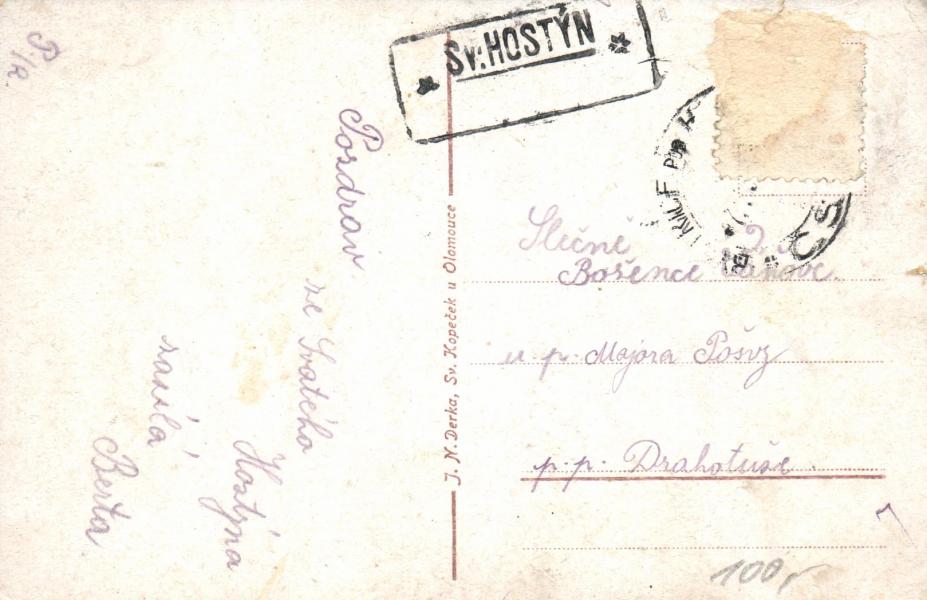 P/R
✱ Sv. HOSTÝN ✱
Pozdrav
ze Svatého
Hostýna
zasílá
Berta
J. N. Derka, Sv. Kopeček u Olomouce
ČS
Slečně
Božence
u p. Majora Pošvz
p. p. Drahotuše.
100,-